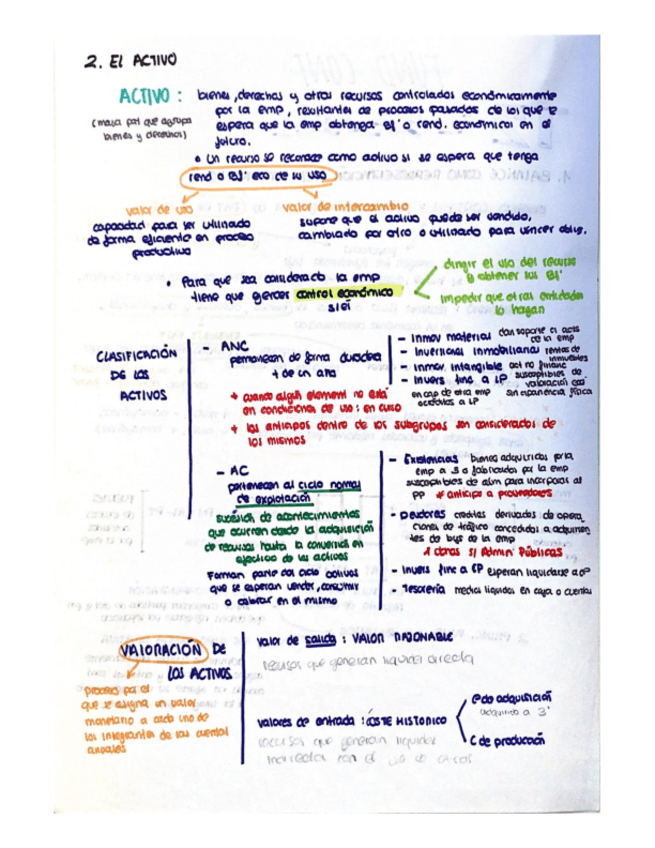 2. EL ACTIVO
ACTIVO : bienes, derechos y otros recursos controlados económicamente
(masa pat que agrupa bienes y derechos)
por la emp, resultantes de procesos pasados de los que se
espera que la emp obtenga ej' o rend. económicos en el
futuro.
• Un recurso se reconoce como activo si se espera que tenga
rend o ej' eco de su uso
valor de uso
capacidad para ser utilizado
de forma eficiente en proceso
productivo
valor de intercambio
supone que el activo puede ser vendido,
cambiado por otro o utilizado para vencer oblig.
• Para que sea considerado la emp
tiene que ejercer control económico
s/él
dirigir el uso del recurso
y obtener sus ej'
impedir que otras entidades
lo hagan
CLASIFICACIÓN
DE LOS
ACTIVOS
- ANC
permanecen de forma duradera
+ de un año
+ cuando algún element no está
en condiciones de uso : en curso
+ los anticipos dentro de los subgrupos son considerados de
los mismos
- Inmov material dan soporte al acts
de la emp
- Inversiones inmobiliarias rentas de
inmuebles
- Inmov. intangible act no financ
susceptibles de
valoración eco
sin apariencia física
- Invers finc a LP
en cap de otra emp
a LP
- AC
pertenecen al ciclo normal
de explotación
sucesión de acontecimientos
que ocurren desde la adquisición
de recursos hasta la conversión en
efectivo de los activos
Forman parte del ciclo activos
que se esperan vender, consumir
o cobrar en el mismo
- Existencias bienes adquiridos por la
emp a 3 o fabricados por la emp
susceptibles de alm para incorporar al
PP * anticipo a proveedores
- Deudores créditos derivados de opera
ciones de tráfico concedidos a adquiren
tes de bs y s de la emp
s/ Admin Públicas
- Invers finc a CP esperan liquidarse a CP
- Tesorería medios líquidos en caja o cuentas
VALORACIÓN DE
LOS ACTIVOS
proceso por el
que se asigna un valor
monetario a cada uno de
los integrantes de las cuentas
anuales
valor de salida : VALOR RAZONABLE
recursos que generan liquidez directa
valores de entrada : COSTE HISTORICO
recursos que generan liquidez
indirecta con el uso de
P de adquisición
adquirido a 3'
C de producción